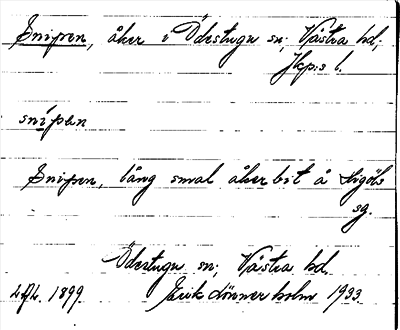 Snipen, åker i Ödestugu sn; Västra hd;
Jkp:s l.
snípen
Snipen, lång smal åker bit å
sg.
Ödestugu sn; Västra hd.
1899 Erik Lönnerholm 1933